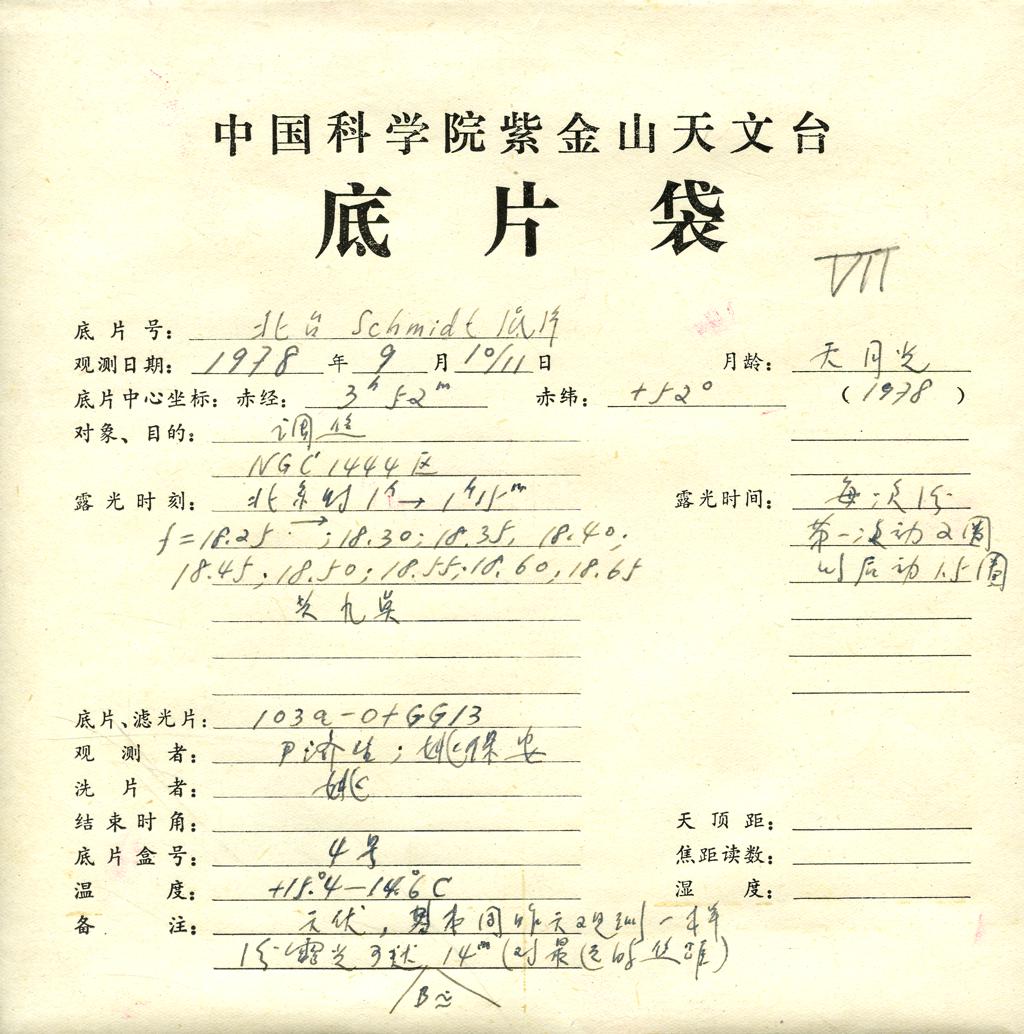 中国科学院紫金山天文台
底片袋
VII
底片号: 北台 Schmidt 底片
观测日期: 1978 年 9 月 10/11 日 月龄: 无月光
底片中心坐标: 赤经: 3h 52m 赤纬: +52° (1978)
对象、目的: 调焦
NGC 1444 区
露光时刻: 北京时 1h → 1h15m 露光时间: 每次1分
f=18.25 → ; 18.30; 18.35, 18.40; 第一次动2圈
18.45; 18.50; 18.55; 18.60; 18.65 以后动1.5圈
共九点
底片、滤光片: 103a-O+GG13
观测者: 尹济生; 姚保安
洗片者: 姚
结束时角: 天顶距:
底片盒号: 4号 焦距读数:
温度: +15.°4—14.°6C 湿度:
备注: 基本同昨天观测一样
1分露光可达 14m (对最近的焦距)
B≈